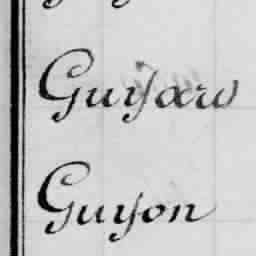 Guyard
Guyon